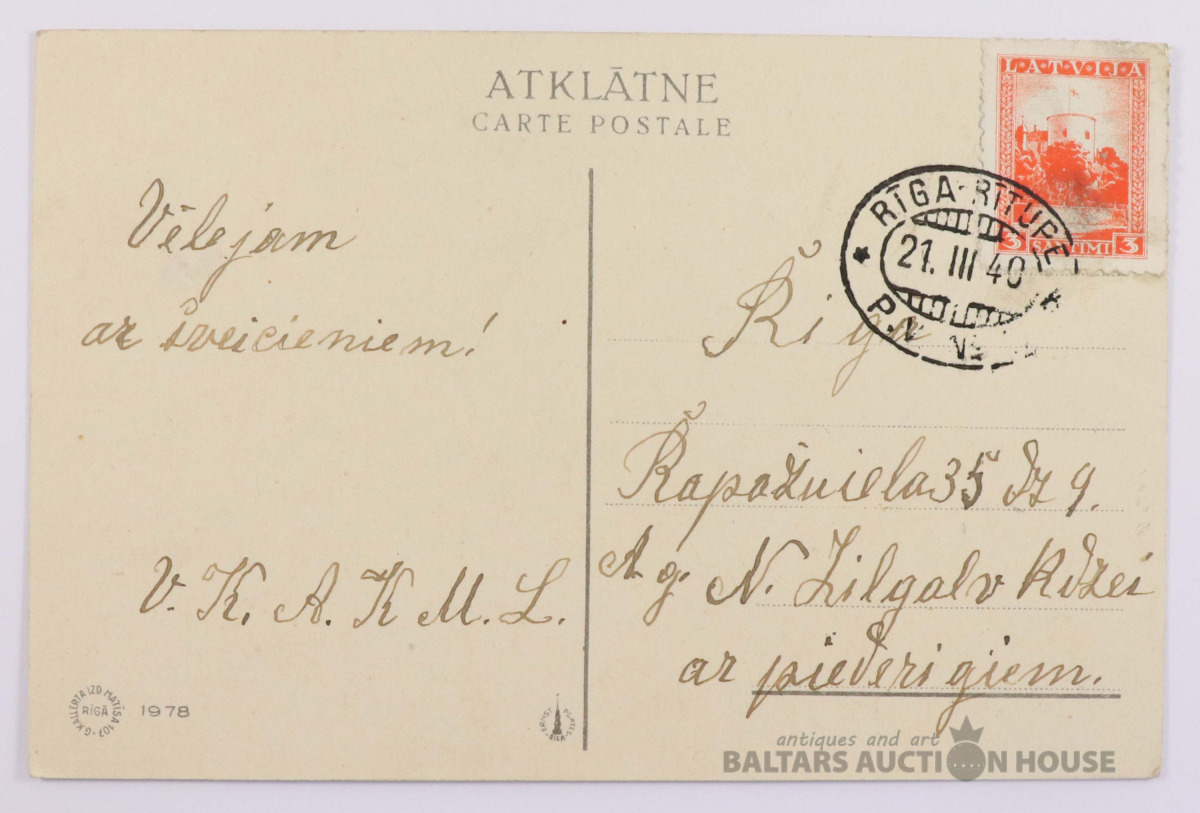 ATKLĀTNE
CARTE POSTALE
LATVIJA
3 SANTIMI 3
RĪGA-RĪTUPE
21. III 40
P.N. №
Vēlejam
ar sveicieniem!
V. K. A. K M. L.
Rīga
35 Dz 9.
A. g. N. Zilgalv kdzei
ar piederigiem.
G. KALLERTA IZD. MATĪSA 107
RĪGĀ
1978
ERNST PLATES
RIGA
antiques and art
BALTARS AUCTION HOUSE